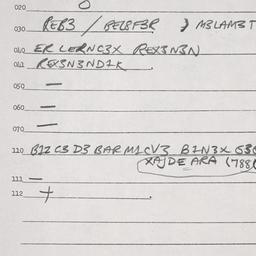 020
030 REB3 / BELBF3R } M3LAM3T
040 ER LERNC3X REX3N3N
041 REX3N3ND1K
050 —
060 —
070 —
110 B1Z C3 D3 BAR M1CV3 B1N3X
XAJDE ARA (788
111 —
112 +